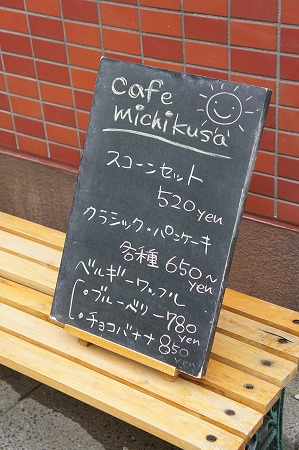 cafe
michikusa
スコーンセット
520yen
クラシック・パンケーキ
各種 650〜
yen
ベルギーワッフル
・ブルーベリー 780
yen
・チョコバナナ 850
yen